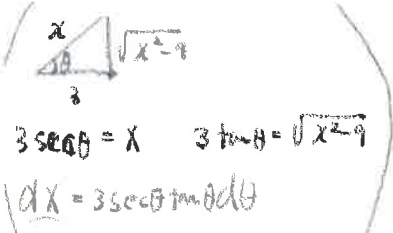 x √x²-9
θ
3
3 secθ = x 3 tanθ = √x²-9
dx = 3secθ tanθdθ